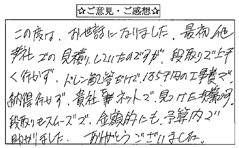 ☆ご意見・ご感想☆
この度は、お世話になりました。最初、他
社の見積りしていたのですが、段取りで上手
く行かず、ドレン配管だけで18.5千円の工事費で
納得行かず、貴社をネットで見つけた
段取りもスムーズで、金額的にも予算内で
助かりました。ありがとうございました。